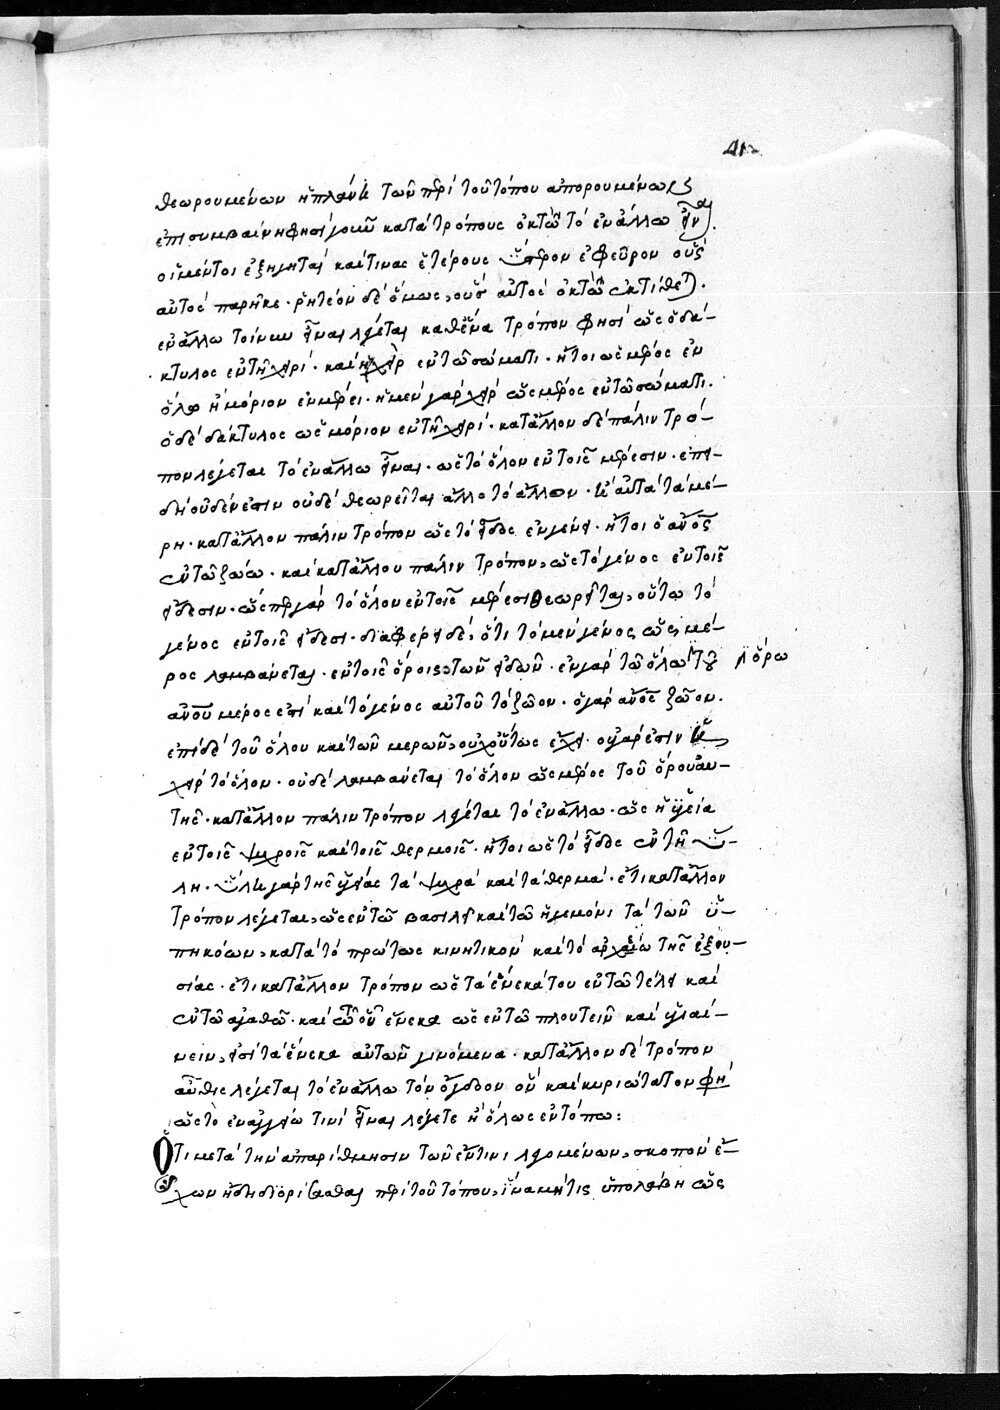 θεωρουμένων ἡ πλάνη τῶν περὶ τοῦ τόπου ἀπορουμένων
ἐπισυμβαίνη φησὶ γοῦν κατὰ τρόπους ὀκτὼ τὸ ἐν ἄλλω εἶναι.
οἱ μέντοι ἐξηγηταὶ καί τινας ἑτέρους ὕστερον ἐφεῦρον οὓς
αὐτὸς παρῆκε. ῥητέον δὲ ὅμως, οὓς αὐτὸς ὀκτὼ ἐκτίθεται.
ἐν ἄλλω τοίνυν εἶναι λέγεται καθ' ἕνα τρόπον φησὶ ὡς ὁ δά-
κτυλος ἐν τῆ χειρί. καὶ ἡ χεὶρ ἐν τῶ σώματι. ἤτοι ὡς μέρος ἐν
ὅλω ἢ μόριον ἐν μέρει. ἡ μὲν γὰρ χεὶρ ὡς μέρος ἐν τῶ σώματι.
ὁ δὲ δάκτυλος ὡς μόριον ἐν τῆ χειρί. κατ' ἄλλον δὲ πάλιν τρό-
πον λέγεται τὸ ἐν ἄλλω εἶναι. ὡς τὸ ὅλον ἐν τοῖς μέρεσιν. ἐπει-
δὴ οὐδέν ἐστιν οὐδὲ θεωρεῖται ἄλλο τὸ ἄλλον. ἢ αὐτὰ τὰ μέ-
ρη. κατ' ἄλλον πάλιν τρόπον ὡς τὸ εἶδος ἐν γένει. ἤτοι ὁ ἄνος
ἐν τῶ ζώω. καὶ κατ' ἄλλου πάλιν τρόπον, ὡς τὸ γένος ἐν τοῖς
εἴδεσιν. ὥσπερ γὰρ τὸ ὅλον ἐν τοῖς μέρεσι θεωρεῖται, οὕτω τὸ
γένος ἐν τοῖς εἴδεσι. διαφέρει δὲ, ὅτι τὸ μὲν γένος, ὡς μέ-
ρος λαμβάνεται. ἐν τοῖς ὅροις, τῶν εἰδῶν. ἐν γὰρ τῶ ὅλω τοῦ λόρω
ἀνου μέρος ἐστὶ καὶ τὸ γένος αὐτοῦ τὸ ζῶον. ὁ γὰρ ἄνος ζῶον.
ἐπὶ δὲ τοῦ ὅλου καὶ τῶν μερῶν, οὐχ οὕτως ἔχει. οὐ γάρ ἐστιν ἡ
χεὶρ τὸ ὅλον. οὐδὲ λαμβάνεται τὸ ὅλον ὡς μέρος τοῦ ὅρου αὐ-
τῆς. κατ' ἄλλον πάλιν τρόπον λέγεται τὸ ἐν ἄλλω. ὡς ἡ ὑγεία
ἐν τοῖς ψυχροῖς καὶ τοῖς θερμοῖς. ἤτοι ὡς τὸ εἶδος ἐν τῆ ὕ-
λη. ὕλη γὰρ τῆς ὑγείας τὰ ψυχρὰ καὶ τὰ θερμά. ἔτι κατ' ἄλλον
τρόπον λέγεται, ὡς ἐν τῶ βασιλεῖ καὶ τῶ ἡγεμόνι τὰ τῶν ὑ-
πηκόων, κατὰ τὸ πρώτως κινητικὸν καὶ τὸ τῆς ἐξου-
σίας. ἔτι κατ' ἄλλον τρόπον ὡς τὰ ἕνεκά του ἐν τῶ τέλει καὶ
ἐν τῶ ἀγαθῶ. καὶ ὧ οὗ ἕνεκα ὡς ἐν τῶ πλουτεῖν καὶ ὑγιαί-
νειν, ἐστὶ τὰ ἕνεκα αὐτῶν γινόμενα. κατ' ἄλλον δὲ τρόπον
αὖθις λέγεται τὸ ἐν ἄλλω τὸν ὄγδοον ὃν καὶ κυριώτατον φησὶ
ὡς τὸ ἐν ἀγγείω τινὶ εἶναι λέγεται ἢ ὅλως ἐν τόπω:
Ὅτι μετὰ τὴν ἀπαρίθμησιν τῶν ἔν τινι λεγομένων, σκοπὸν ἔ-
χων ἤδη διορίσασθαι περὶ τοῦ τόπου, ἵνα μή τις ὑπολάβη ὡς